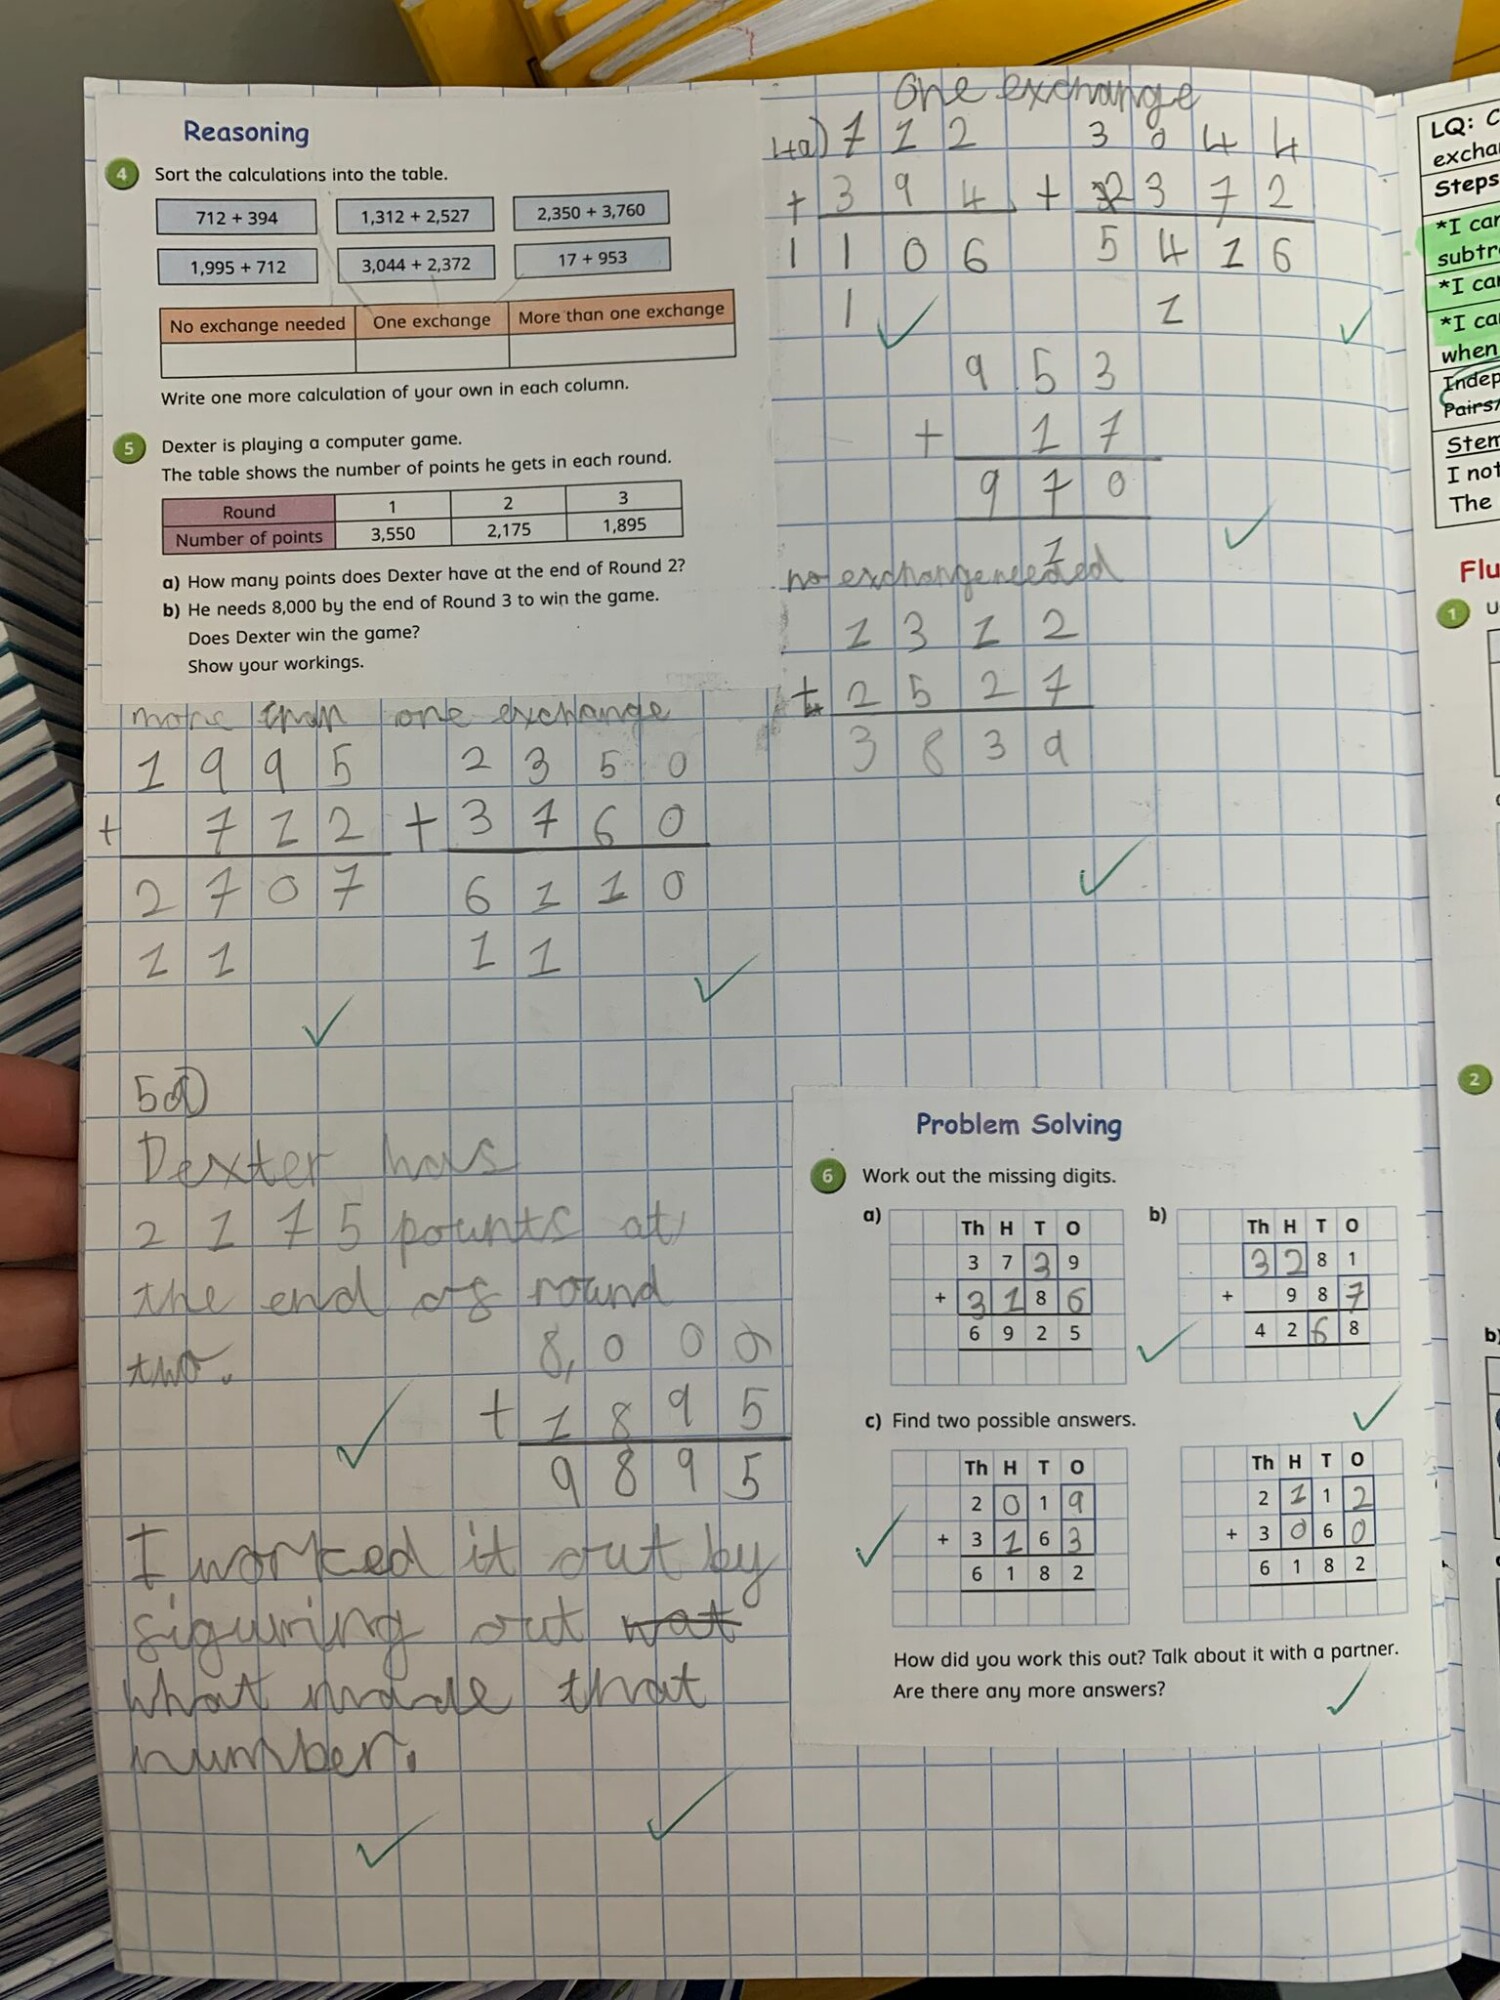 Reasoning
4 Sort the calculations into the table.
712 + 394 1,312 + 2,527 2,350 + 3,760
1,995 + 712 3,044 + 2,372 17 + 953
No exchange needed One exchange More than one exchange
Write one more calculation of your own in each column.
5 Dexter is playing a computer game.
The table shows the number of points he gets in each round.
Round 1 2 3
Number of points 3,550 2,175 1,895
a) How many points does Dexter have at the end of Round 2?
b) He needs 8,000 by the end of Round 3 to win the game.
Does Dexter win the game?
Show your workings.
one exchange
4a) 7 1 2
+ 3 9 4
1 1 0 6
1
3 0 4 4
+ 2 3 7 2
5 4 1 6
1
9 5 3
+ 1 7
9 7 0
1
no exchange needed
1 3 1 2
+ 2 5 2 7
3 8 3 9
more than one exchange
1 9 9 5
+ 7 1 2
2 7 0 7
1 1
2 3 5 0
+ 3 7 6 0
6 1 1 0
1 1
5a)
Dexter has
2 1 7 5 pounts at
the end of round
two.
8,0 0 0
+ 1 8 9 5
9 8 9 5
I worked it out by
figuring out wat
what made that
number.
Problem Solving
6 Work out the missing digits.
a)
Th H T O
3 7 3 9
+ 3 1 8 6
6 9 2 5
b)
Th H T O
3 2 8 1
+ 9 8 7
4 2 6 8
c) Find two possible answers.
Th H T O
2 0 1 9
+ 3 1 6 3
6 1 8 2
Th H T O
2 1 1 2
+ 3 0 6 0
6 1 8 2
How did you work this out? Talk about it with a partner.
Are there any more answers?
LQ: C
excha
Steps
*I car
subtr
*I ca
*I ca
when
Indep
Pairs/
Stem
I not
The
Flu
1 U
2
b)